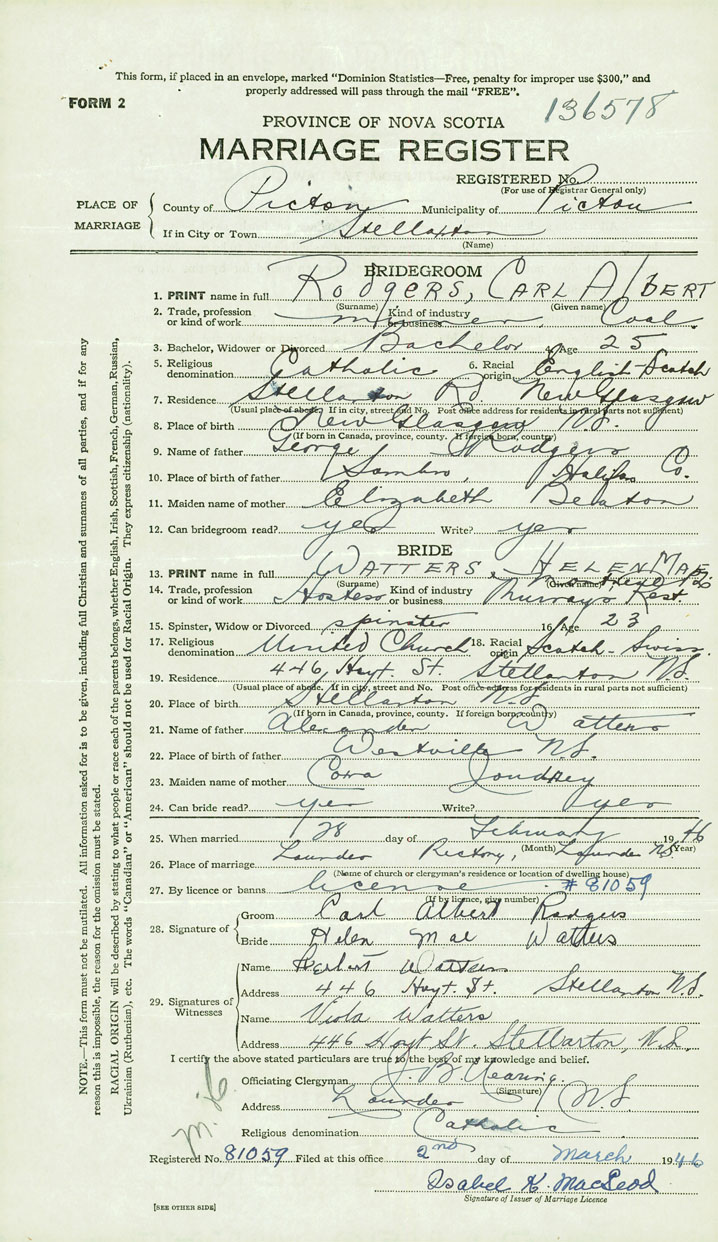 This form, if placed in an envelope, marked "Dominion Statistics—Free, penalty for improper use $300," and
properly addressed will pass through the mail "FREE".
FORM 2
136578
PROVINCE OF NOVA SCOTIA
MARRIAGE REGISTER
REGISTERED No.
(For use of Registrar General only)
PLACE OF MARRIAGE
County of Pictou Municipality of Pictou
If in City or Town Stellarton
(Name)
BRIDEGROOM
1. PRINT name in full RODGERS, CARL AlbERT
(Surname) (Given name)
2. Trade, profession or kind of work miner Kind of industry or business Coal
3. Bachelor, Widower or Divorced Bachelor 4. Age 25
5. Religious denomination Catholic 6. Racial origin English-Scotch
7. Residence Stellarton Rd. New Glasgow
(Usual place of abode. If in city, street and No. Post office address for residents in rural parts not sufficient)
8. Place of birth New Glasgow N.S.
(If born in Canada, province, county. If foreign born, country)
9. Name of father George Rodgers
10. Place of birth of father Sambro, Halifax Co.
11. Maiden name of mother Elizabeth Beaton
12. Can bridegroom read? yes Write? yes
BRIDE
13. PRINT name in full WATTERS, HELEN MAE
(Surname) (Given name)
14. Trade, profession or kind of work Hostess Kind of industry or business Murray's Rest.
15. Spinster, Widow or Divorced spinster 16. Age 23
17. Religious denomination United Church 18. Racial origin Scotch-Swiss
19. Residence 446 Hoyt. St. Stellarton N.S.
(Usual place of abode. If in city, street and No. Post office address for residents in rural parts not sufficient)
20. Place of birth Stellarton N.S.
(If born in Canada, province, county. If foreign born, country)
21. Name of father Alexander Watters
22. Place of birth of father Westville N.S.
23. Maiden name of mother Cora Joudrey
24. Can bride read? yes Write? yes
25. When married 28 day of February 1946
(Month) (Year)
26. Place of marriage Lourdes Rectory, Lourdes N.S.
(Name of church or clergyman's residence or location of dwelling house)
27. By licence or banns license # 81059
(If by licence, give number)
28. Signature of
Groom Carl Albert Rodgers
Bride Helen Mae Watters
29. Signatures of Witnesses
Name Herbert Watters
Address 446 Hoyt. St. Stellarton N.S.
Name Viola Watters
Address 446 Hoyt St. Stellarton, N.S.
I certify the above stated particulars are true to the best of my knowledge and belief.
Officiating Clergyman J. B. Kearing.
(Signature)
Address Lourdes N.S.
Religious denomination Catholic
Registered No. 81059 Filed at this office 2nd day of March 1946
Isabel K. MacLeod
Signature of Issuer of Marriage Licence
[SEE OTHER SIDE]
NOTE.—This form must not be mutilated. All information asked for is to be given, including full Christian and surnames of all parties, and if for any
reason this is impossible, the reason for the omission must be stated.
RACIAL ORIGIN will be described by stating to what people or race each of the parents belongs, whether English, Irish, Scottish, French, German, Russian,
Ukrainian (Ruthenian), etc. The words "Canadian" or "American" should not be used for Racial Origin. They express citizenship (nationality).